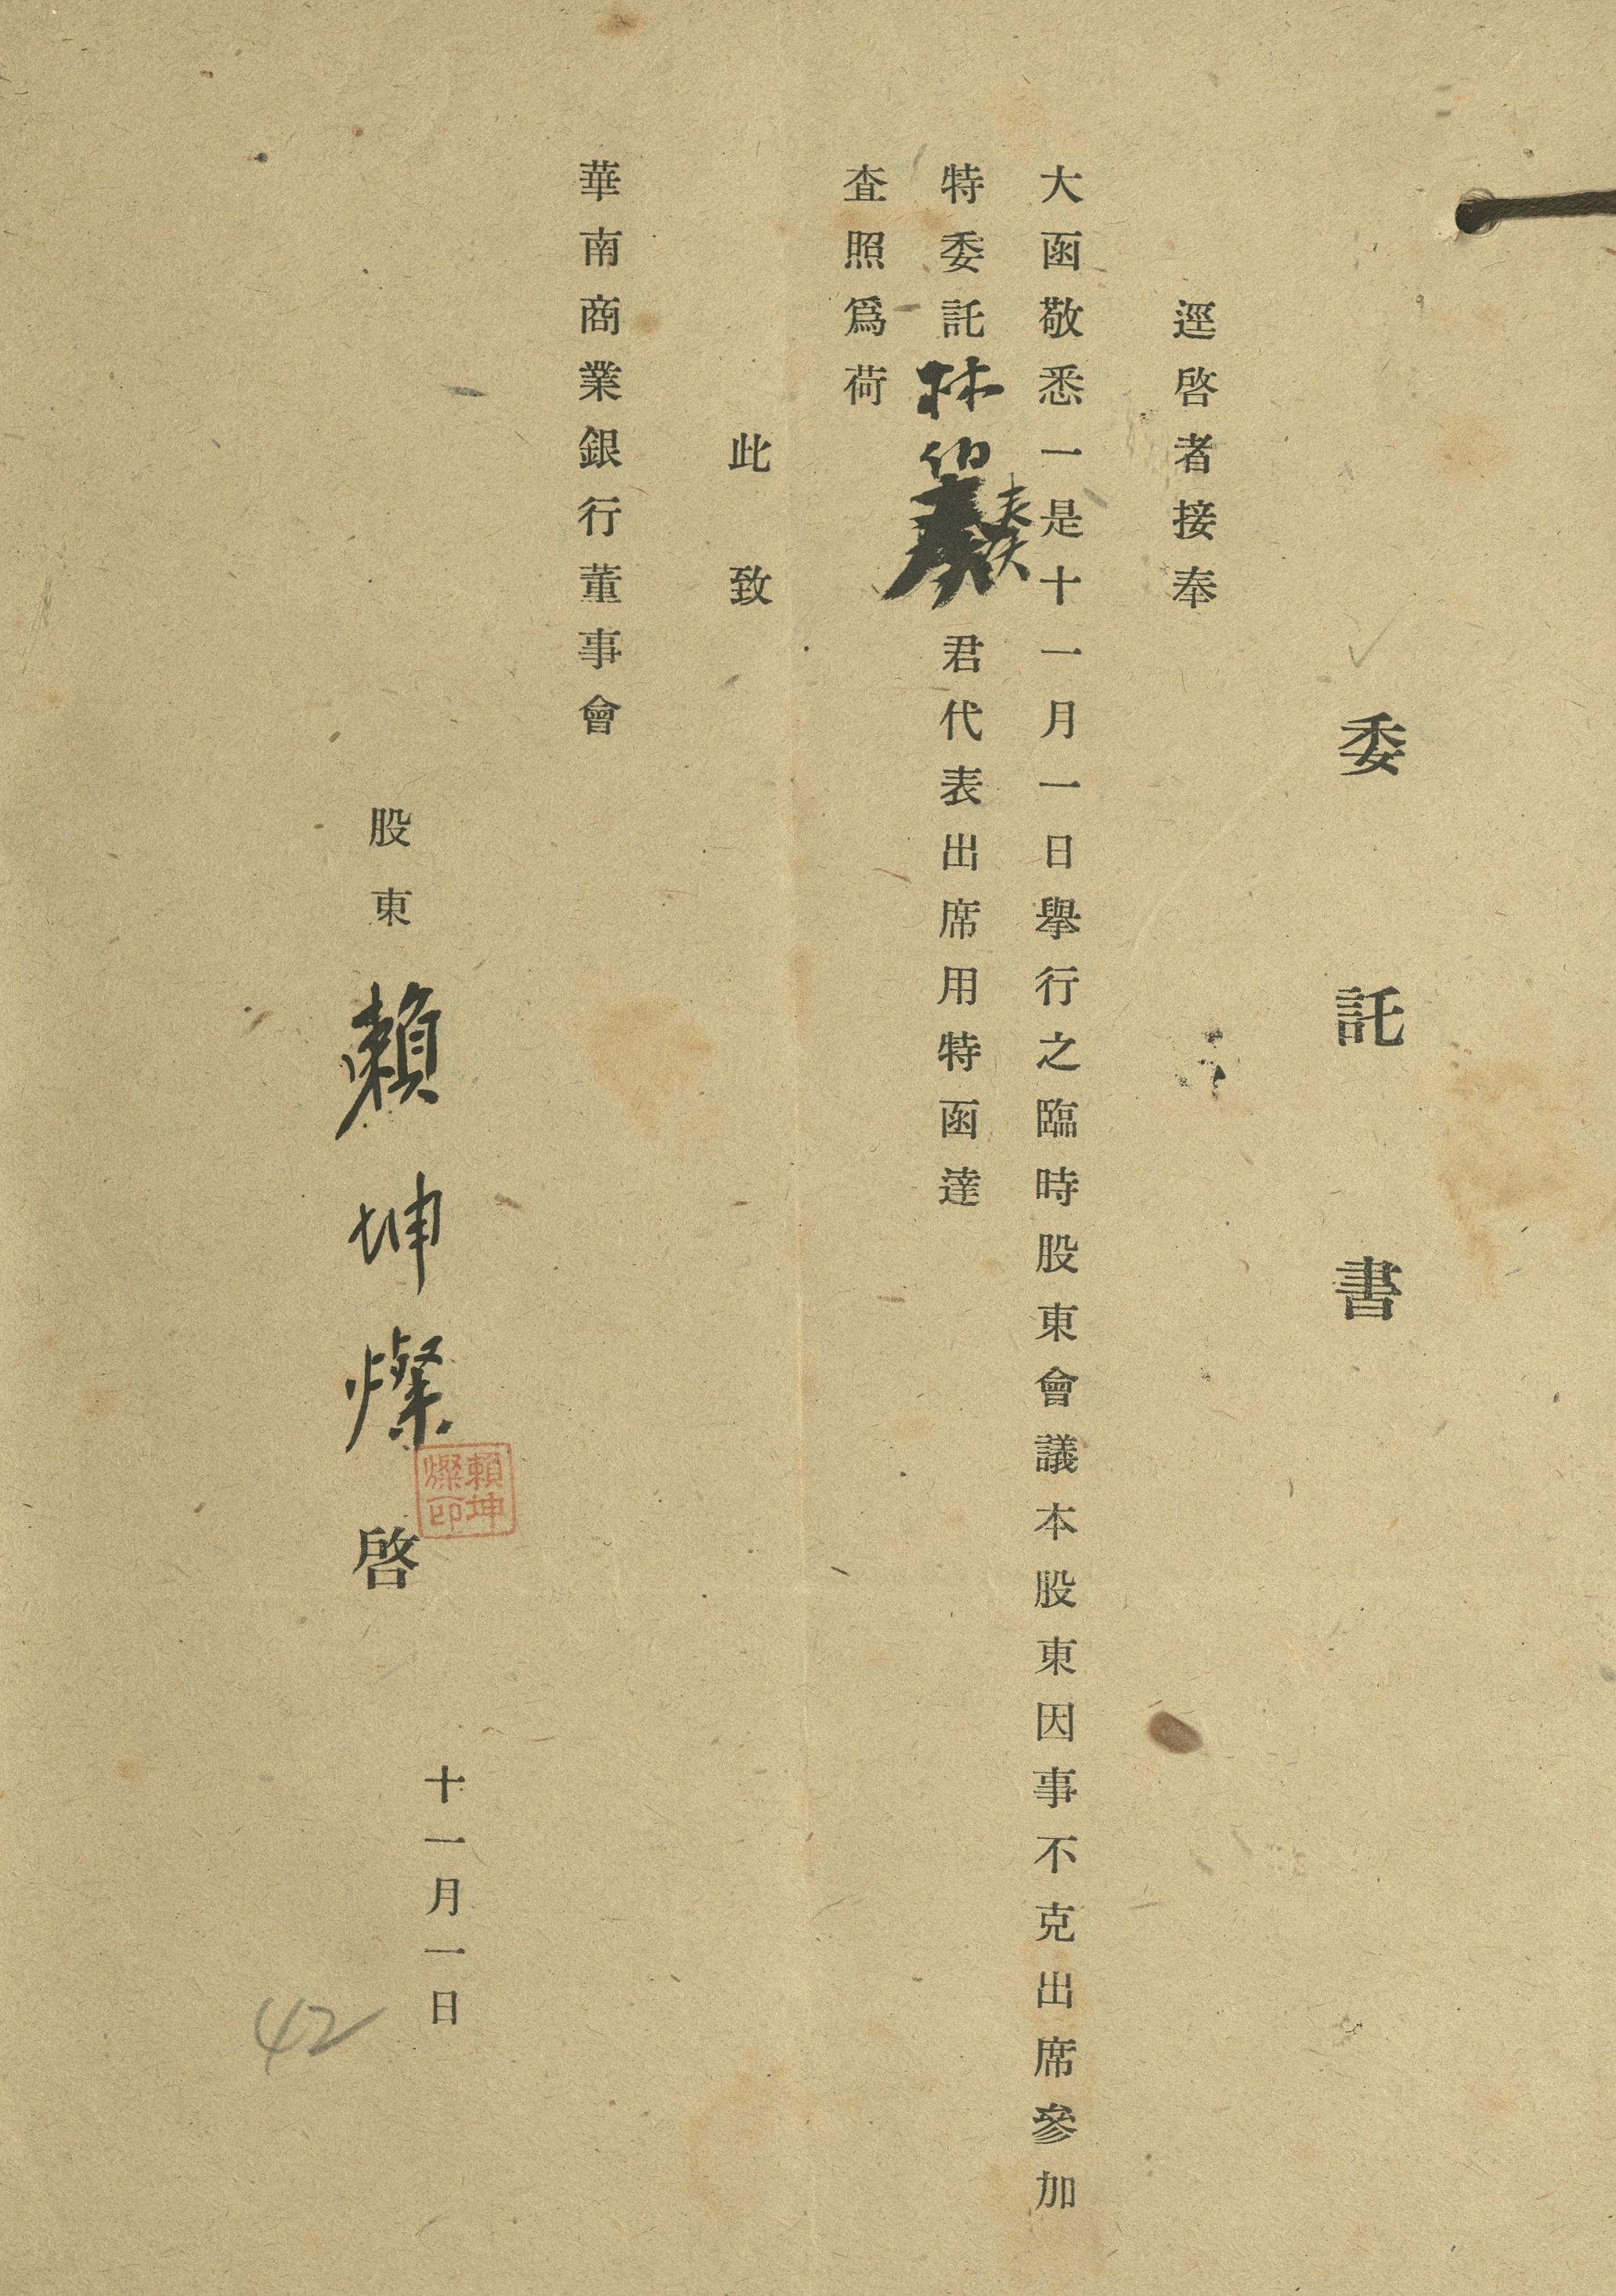 委託書
逕啓者接奉
大函敬悉一是十一月一日舉行之臨時股東會議本股東因事不克出席參加
特委託林伯奏君代表出席用特函達
査照爲荷
此致
華南商業銀行董事會
股東 賴坤燦 啓
賴坤燦印
十一月一日
42